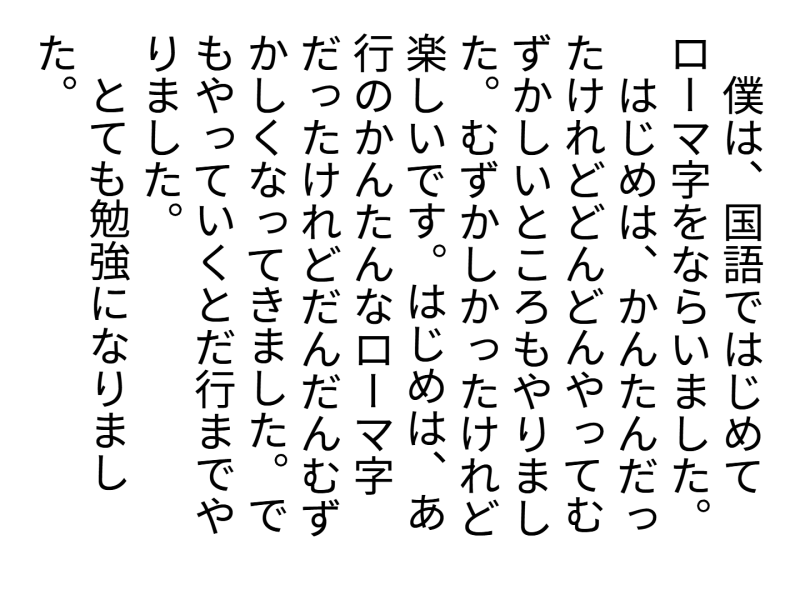 僕は、国語ではじめて
ローマ字をならいました。
　はじめは、かんたんだっ
たけれどどんどんやってむ
ずかしいところもやりまし
た。むずかしかったけれど
楽しいです。はじめは、あ
行のかんたんなローマ字
だったけれどだんだんむず
かしくなってきました。で
もやっていくとだ行までや
りました。
　とても勉強になりまし
た。